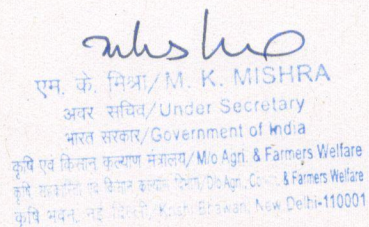 एम. के. मिश्रा/M. K. MISHRA
अवर सचिव/Under Secretary
भारत सरकार/Government of India
कृषि एवं किसान कल्याण मंत्रालय/M/o Agri. & Farmers Welfare
कृषि एवं किसान कल्याण विभाग/D/o Agri., & Farmers Welfare
कृषि भवन, नई दिल्ली/Krishi Bhawan, New Delhi-110001